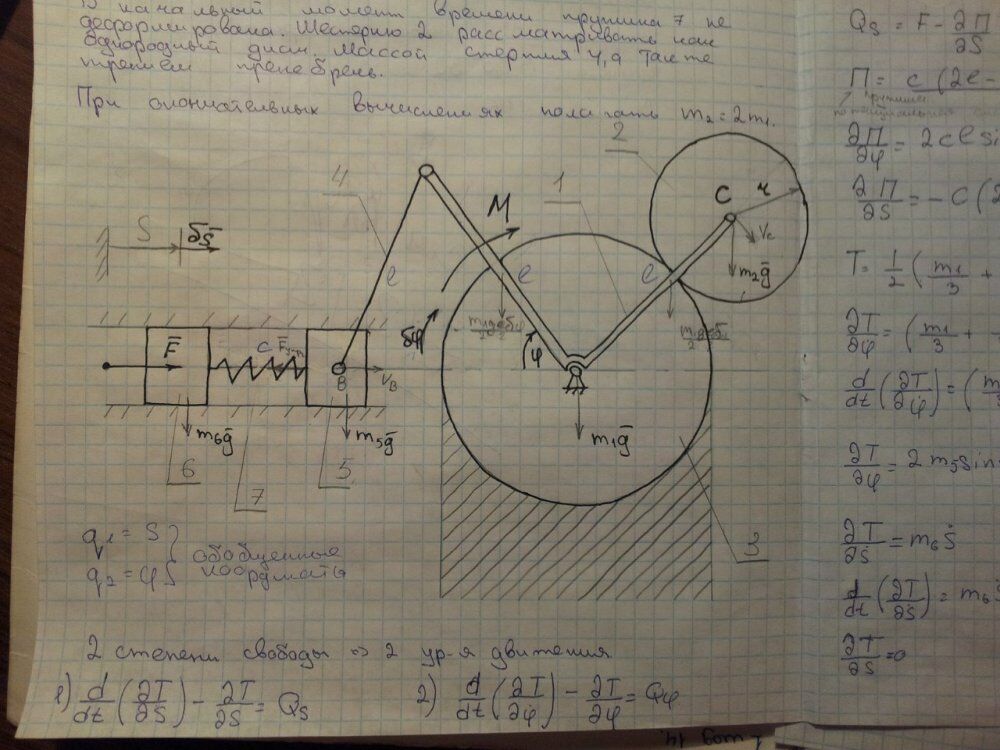 В начальный момент времени пружина 7 не
деформирована. Шестерню 2 рассматривать как
однородный диск. Массой стержня 4, а также
трением пренебречь.
При окончательных вычислениях полагать m₂ = 2m₁.
2
4
1
C
r
M
V_C
S
δS̄
m₂ḡ
l
l
l
δφ̄
φ
F̄
C
F̄упр
B
V_B
m₁ḡ
m₆ḡ
m₅ḡ
6
7
5
3
q₁ = S
q₂ = φ
} обобщенные
координаты
2 степени свободы => 2 ур-я движения
1) d/dt (∂T/∂Ṡ) − ∂T/∂S = Q_S
2) d/dt (∂T/∂φ̇) − ∂T/∂φ = Q_φ
Q_S = F − ∂П/∂S
П = c (2l −
пружины
∂П/∂φ = 2cl si
∂П/∂S = − c (2
T = 1/2 ( m₁/3 +
∂T/∂φ̇ = ( m₁/3 +
d/dt (∂T/∂φ̇) = ( m
∂T/∂φ = 2 m₅ sin
∂T/∂Ṡ = m₆ Ṡ
d/dt (∂T/∂Ṡ) = m₆ S
∂T/∂S = 0